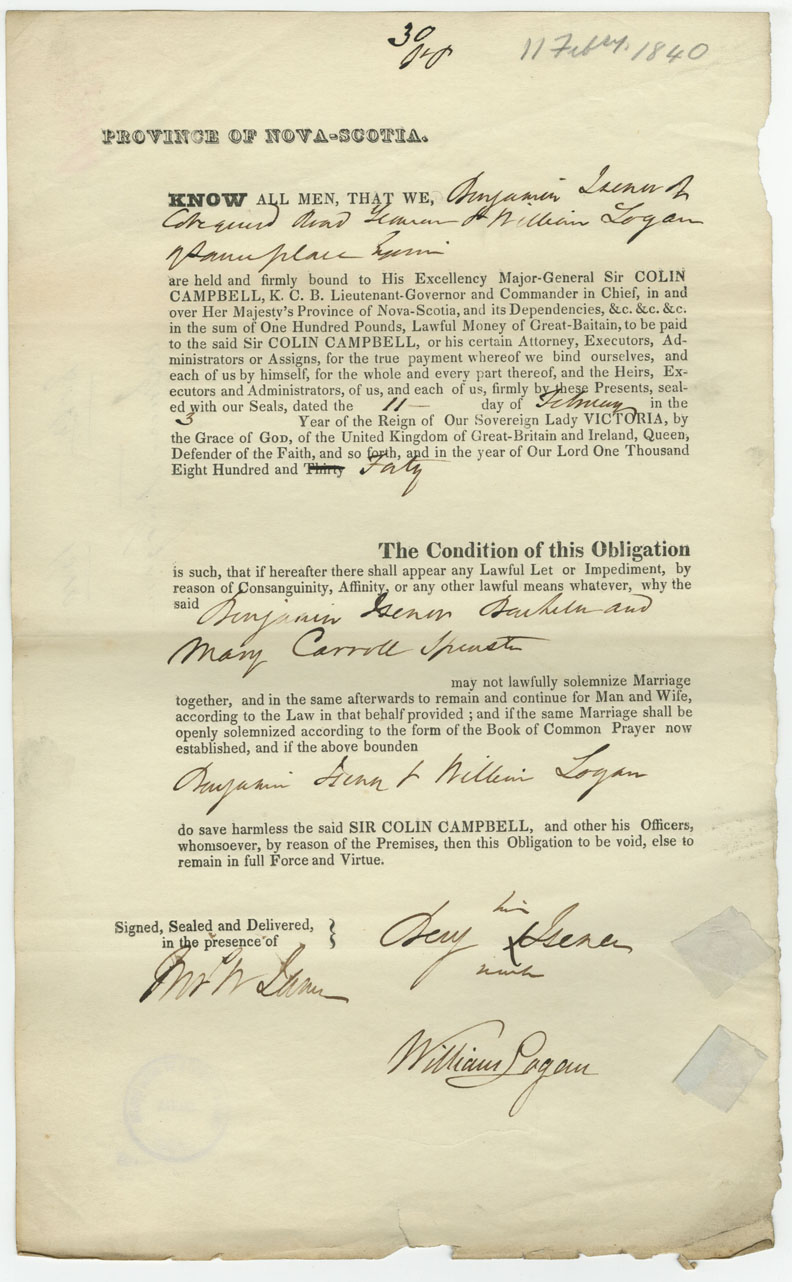 30
11 Febry. 1840
PROVINCE OF NOVA-SCOTIA.
KNOW ALL MEN, THAT WE, Benjamin Isenor of
Road & William Logan
of same place
are held and firmly bound to His Excellency Major-General Sir COLIN
CAMPBELL, K. C. B. Lieutenant-Governor and Commander in Chief, in and
over Her Majesty's Province of Nova-Scotia, and its Dependencies, &c. &c. &c.
in the sum of One Hundred Pounds, Lawful Money of Great-Baitain, to be paid
to the said Sir COLIN CAMPBELL, or his certain Attorney, Executors, Ad-
ministrators or Assigns, for the true payment whereof we bind ourselves, and
each of us by himself, for the whole and every part thereof, and the Heirs, Ex-
ecutors and Administrators, of us, and each of us, firmly by these Presents, seal-
ed with our Seals, dated the 11 — day of February in the
3 Year of the Reign of Our Sovereign Lady VICTORIA, by
the Grace of GOD, of the United Kingdom of Great-Britain and Ireland, Queen,
Defender of the Faith, and so forth, and in the year of Our Lord One Thousand
Eight Hundred and Thirty Forty
The Condition of this Obligation
is such, that if hereafter there shall appear any Lawful Let or Impediment, by
reason of Consanguinity, Affinity, or any other lawful means whatever, why the
said Benjamin Isenor Bachelor and
Mary Carroll Spinster
may not lawfully solemnize Marriage
together, and in the same afterwards to remain and continue for Man and Wife,
according to the Law in that behalf provided ; and if the same Marriage shall be
openly solemnized according to the form of the Book of Common Prayer now
established, and if the above bounden
Benjamin Isenor & William Logan
do save harmless the said SIR COLIN CAMPBELL, and other his Officers,
whomsoever, by reason of the Premises, then this Obligation to be void, else to
remain in full Force and Virtue.
Signed, Sealed and Delivered,
in the presence of
his
Benj X Isenor
mark
William Logan